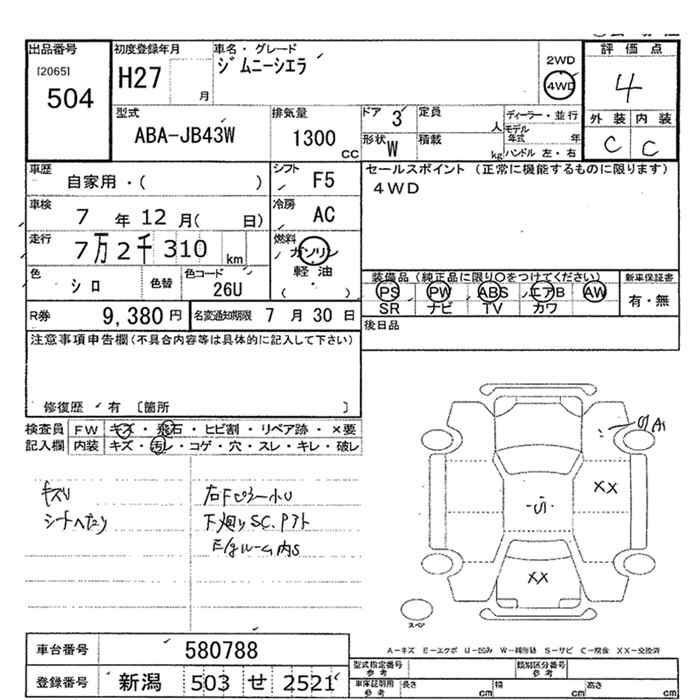 出品番号
[2065]
504
初度登録年月
H27
月
車名・グレード
ジムニーシエラ
2WD
4WD
評価点
4
外装 内装
C C
型式
ABA-JB43W
排気量
1300
cc
ドア 3
形状 W
定員
人
積載
kg
ディーラー・並行
モデル年式 年
ハンドル 左・右
車歴
自家用・( )
シフト F5
車検
7 年 12 月( 日)
冷房 AC
走行
7万2千310 km
燃料
ガソリン
軽油
( )
色
シロ
色替
色コード
26U
R券 9,380 円
名変通知期限 7 月 30 日
セールスポイント (正常に機能するものに限ります)
4WD
装備品(純正品に限り○をつけてください)
PS PW ABS エアB AW
SR ナビ TV カワ
新車保証書
有・無
後日品
注意事項申告欄(不具合内容等は具体的に記入して下さい)
修復歴 有 [箇所 ]
検査員 FW キズ・飛石・ヒビ割・リペア跡・×要
記入欄 内装 キズ・汚レ・コゲ・穴・スレ・キレ・破レ
キズU
シートへたり
右Fピラー小U
下廻りSC.Pアト
E/gルーム内S
A1
XX
S
XX
スペア
A-キズ E-エクボ U-凹み W-補修跡 S-サビ C-腐食 XX-交換済
車台番号 580788
登録番号 新潟 503 せ 2521
型式指定番号
参考
類別区分番号
参考
車庫証明用
参考
長さ cm
幅 cm
高さ cm